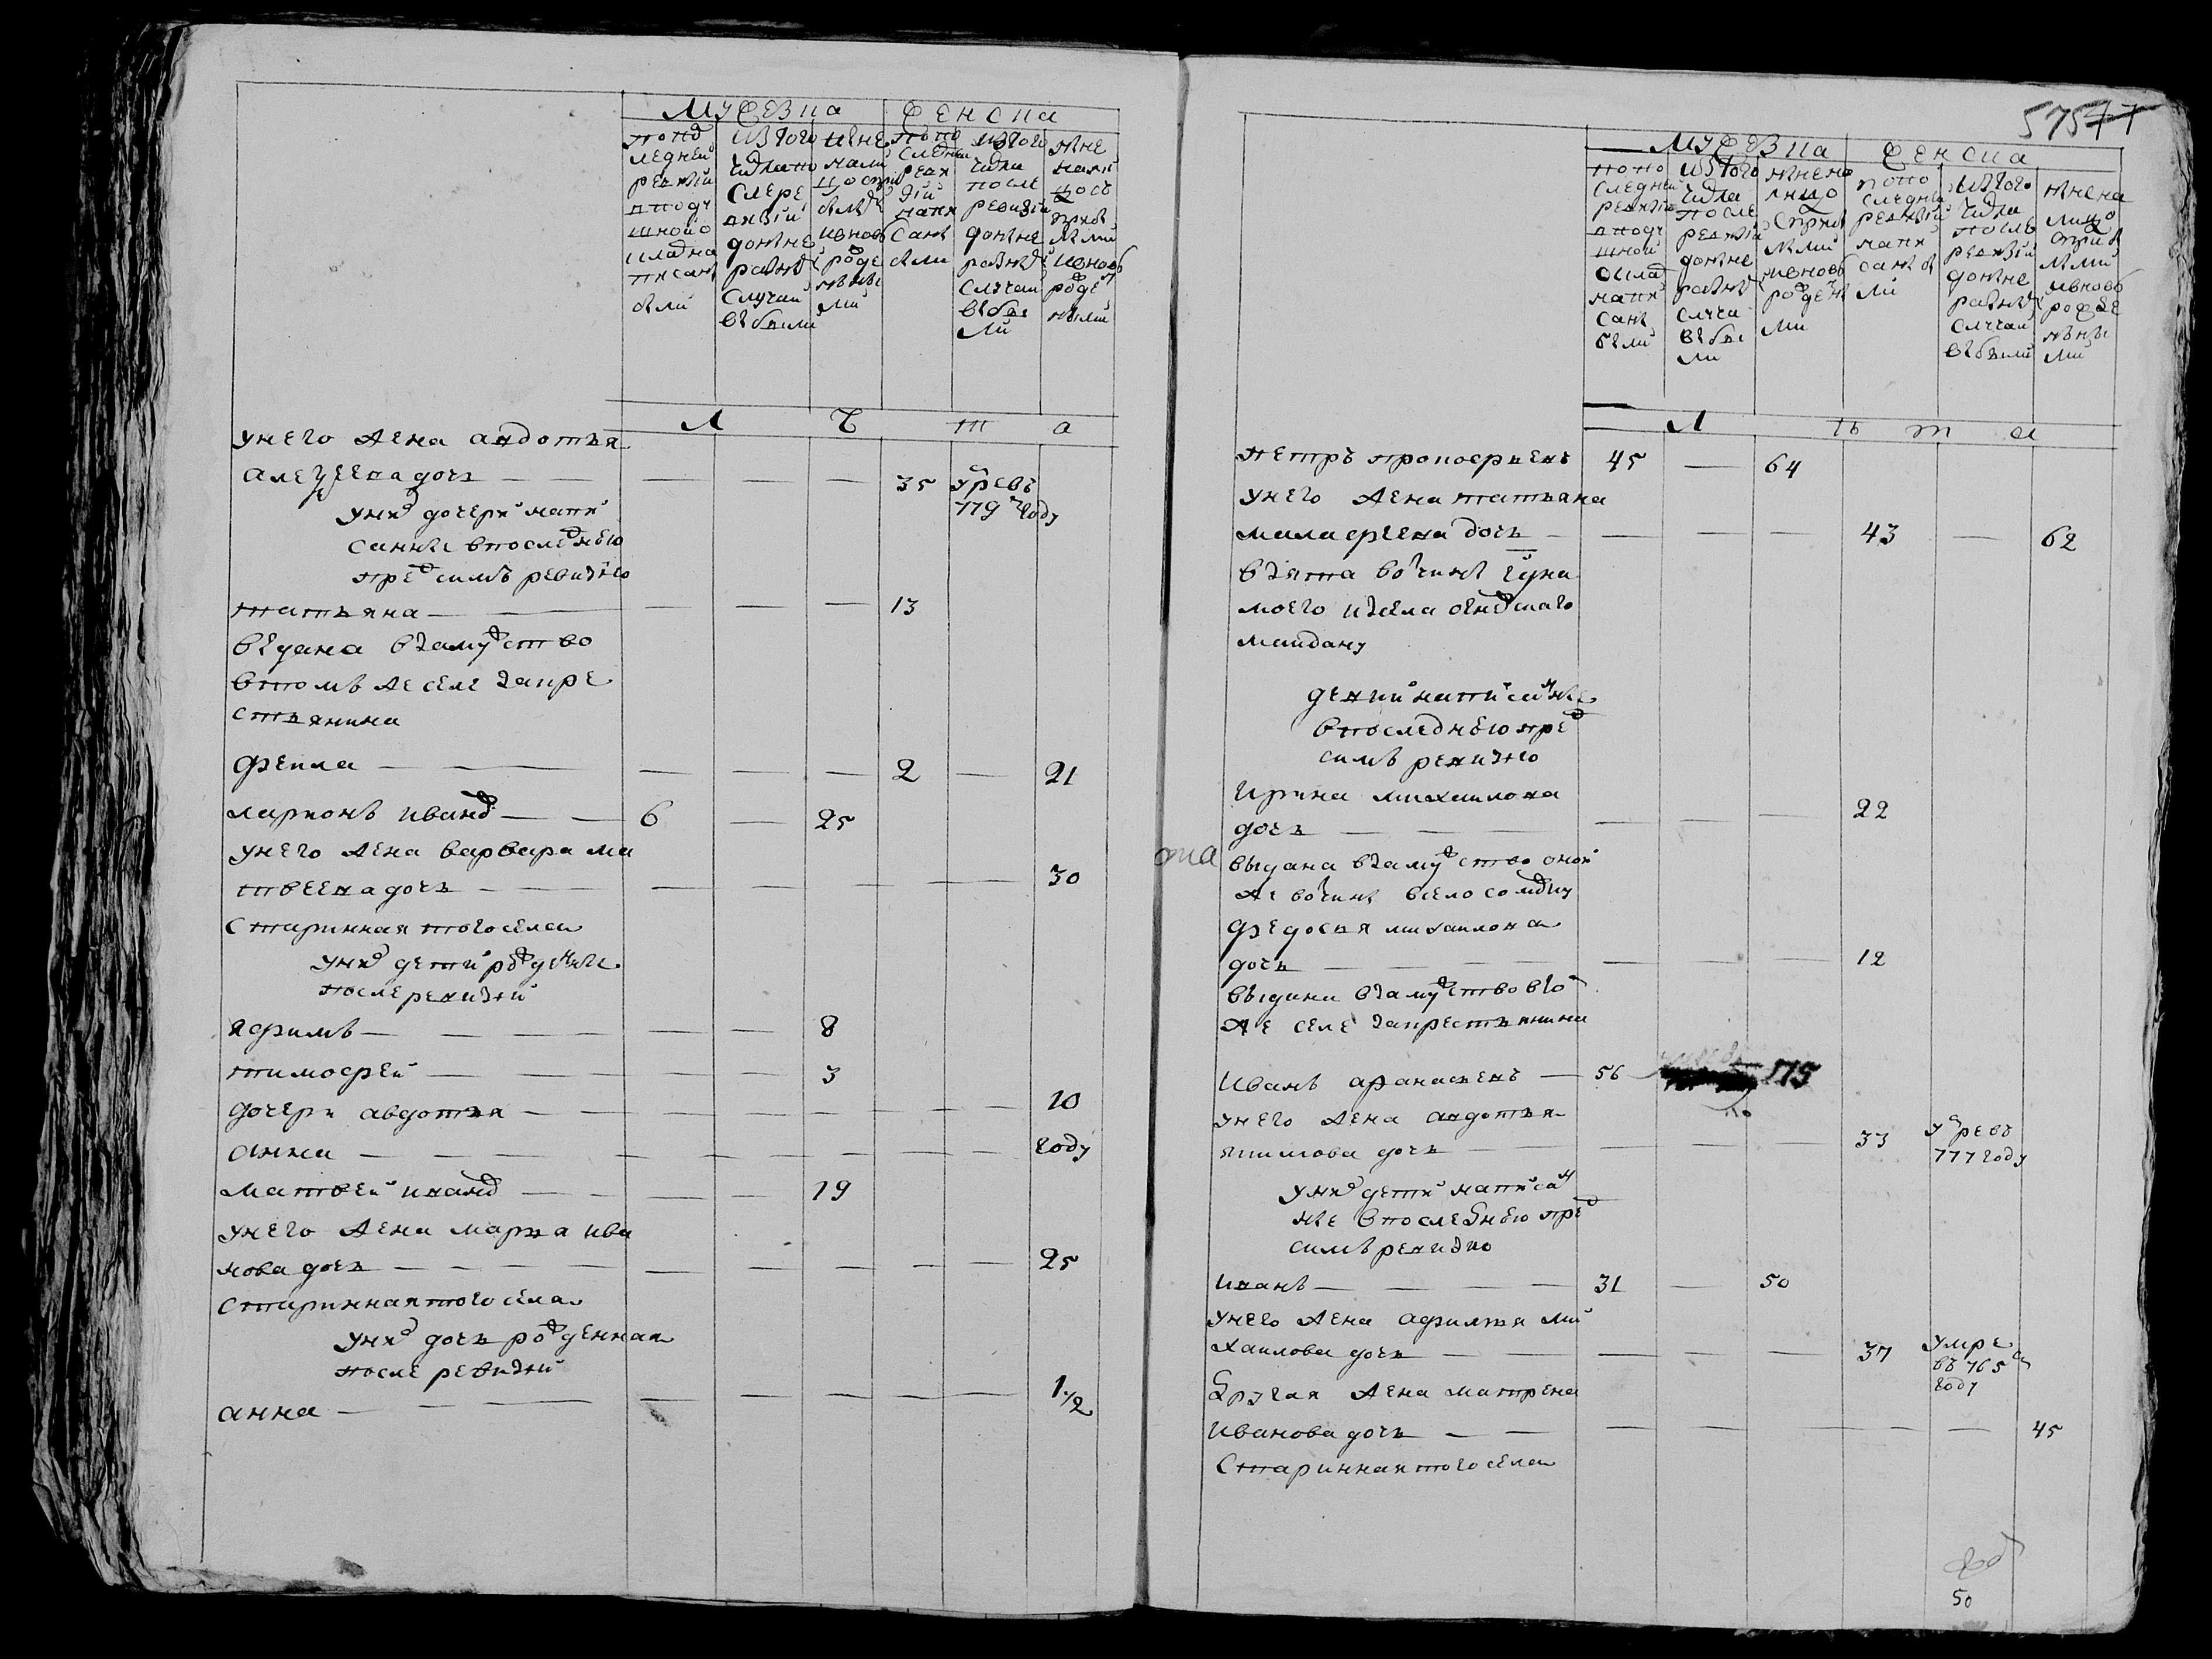 мужеска женска
попо
следней
ревизіи
вподу
шной о
кладна
писан
были
изтого
числапо
слере
визіи
доныне
разны
случаи
выбыли
ныне
нали
цо спри
былы
ивновь
роде
ными
попо
следней
реви
зіи
напи
саны
были
изтого
числа
после
ревизіи
доныне
разны
случаи
выбы
ли
ныне
нали
цось
прибы
лыми
ивновь
роде
ными
л ѣ т а
унего жена авдотья
алеѯеева дочь 35 умре въ
779 году
уних дочери напи
санные впоследнюю
пред симъ ревизию
татьяна 13
выдана взамужство
втомъ же селе закре
стьянина
фекла 2 21
ларионъ иванов 6 25
унего жена варвара ма
твеева дочь 30
старинная того села
уних дети рожденые
после ревизіи
яфимъ 8
тимофей 3
дочери авдотья 10
анна году
матвей иванов 19
унего жена марья ива
нова дочь 25
старинная того села
уних дочь рожденная
после ревизіи
анна 1/2
575 77
мужеска женска
попо
следней
ревизіи
вподу
шной
оклад
напи
саны
были
изтого
числа
после
ревизіи
доныне
разны
случа
выбы
ли
нынена
лицо
сприбы
лыми
ивновь
рожден
ми
попо
следней
ревизіи
напи
саны бы
ли
изтого
числа
после
ревизіи
доныне
разны
случаи
выбыли
нынена
лицо
сприбы
лыми
ивново
рожде
нны
ми
л ѣ т а
петръ прокофьевъ 45 64
унего жена татьяна
малафеева дочь 43 62
взята вотчины
моего изсела
майдану
девки написанные
впоследнюю пред
симъ ревизию
ирина михаилова
дочь 22
выдана взамужство оной
же вотчины всело
федосья михаилова
дочь 12
выдана взамужство втом
же селе закрестьянина
иванъ афанасьевъ 56 775
унего жена авдотья
якимова дочь 33 умре въ
777 году
уних дети написан
ные впоследнюю пред
симъ ревизию
иванъ 31 50
унего жена афимья ми
хаилова дочь 37 умре
въ 765
году
другая жена матрена
иванова дочь 45
старинная того села
50